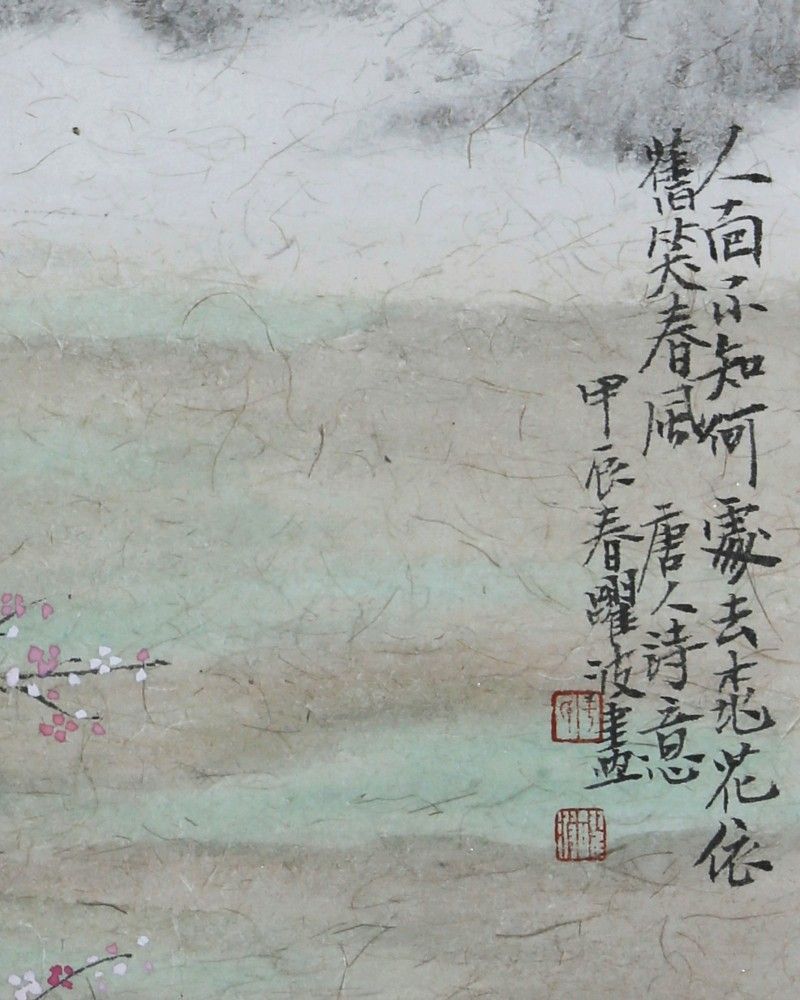 人面不知何處去桃花依
舊笑春風 唐人詩意
甲辰春躍波畫